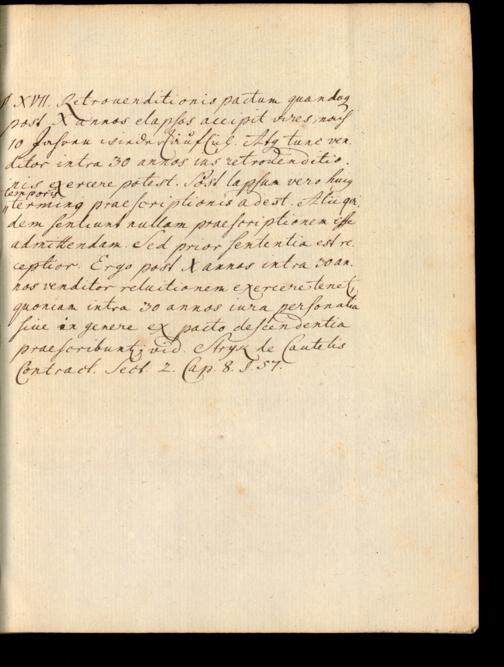 § XVII. Retrovenditionis pactum quandoq
post X annos elapsos accipit vires, nach
10 Jahren wiederkäufflich. Atq tunc ven-
ditor intra 30 annos ius retrovenditio-
nis exercere potest. Post lapsum vero huig
temporis
terming praescriptionis adest. Alii qui-
dem sentiunt nullam praescriptionem esse
admittendam. Sed prior sententia est re-
ceptior. Ergo post X annos intra 30 an-
nos venditor reluitionem exercere tenet,
quoniam intra 30 annos iura personalia
sive in genere ex pacto descendentia
praescribunt, vid. Stryk de Cautelis
Contract. Sect 2. Cap. 8. § 57.